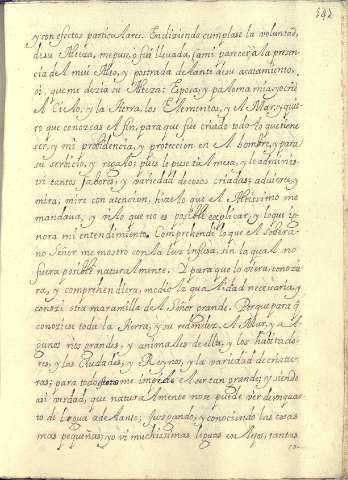 242
y con efectos particulares. En diziendo cumplase la voluntad,
de su Alteza, me puse, o fui llevada, (a mi parecer) a la presen
cia del muy Alto, y postrada delante de su acatamiento,
oi, que me dezia su Alteza: Esposa, y paloma mia, yo crie
el Cielo, y la tierra, los Elementos, y el Mar, y quie
ro que conozcas el fin, para que fue criado todo lo que tiene
ser, y mi probidencia, y proteccion en el hombre, y para
su serbicio, y regalos pues le puse la mesa, y le adminis
tre tantos sabores, y variedad de cosas criadas; advierte, y
mira; mire con atencion, hize lo que el Altissimo me
mandaua, y vi lo que no es posible explicar, y lo que ig
nora mi entendimiento. Comprehendi lo que el sobera
no Señor me mostro con la luz infusa, sin la qual no
fuera posible naturalmente. I para que lo viera, conozie
ra, y comprehendiera, me dio la qualidad necesaria, y
conozi otra marauilla del Señor grande. Porque para q̃
conoziese toda la tierra, y su redondez, el Mar, y al
gunos rios grandes, y animalles de ella; y los habitado
res, y las Ciudades, y Reynos, y la variedad de criatu
ras; para todo, no me impidio el ser tan grande; y siendo
asi verdad, que naturalmente no se puede ver de un quar
to de legua adelante; juzgando, y conociendo las cosas
mas pequeñas; yo vi muchissimas leguas en lejos, tantas
co-